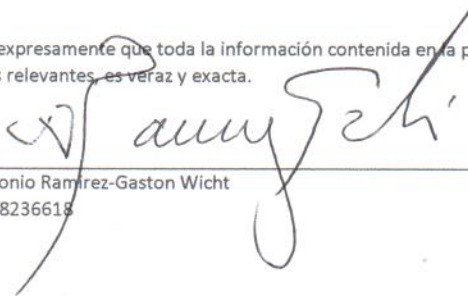 expresamente que toda la información contenida en la p
s relevantes, es veraz y exacta.
onio Ramírez-Gaston Wicht
8236618